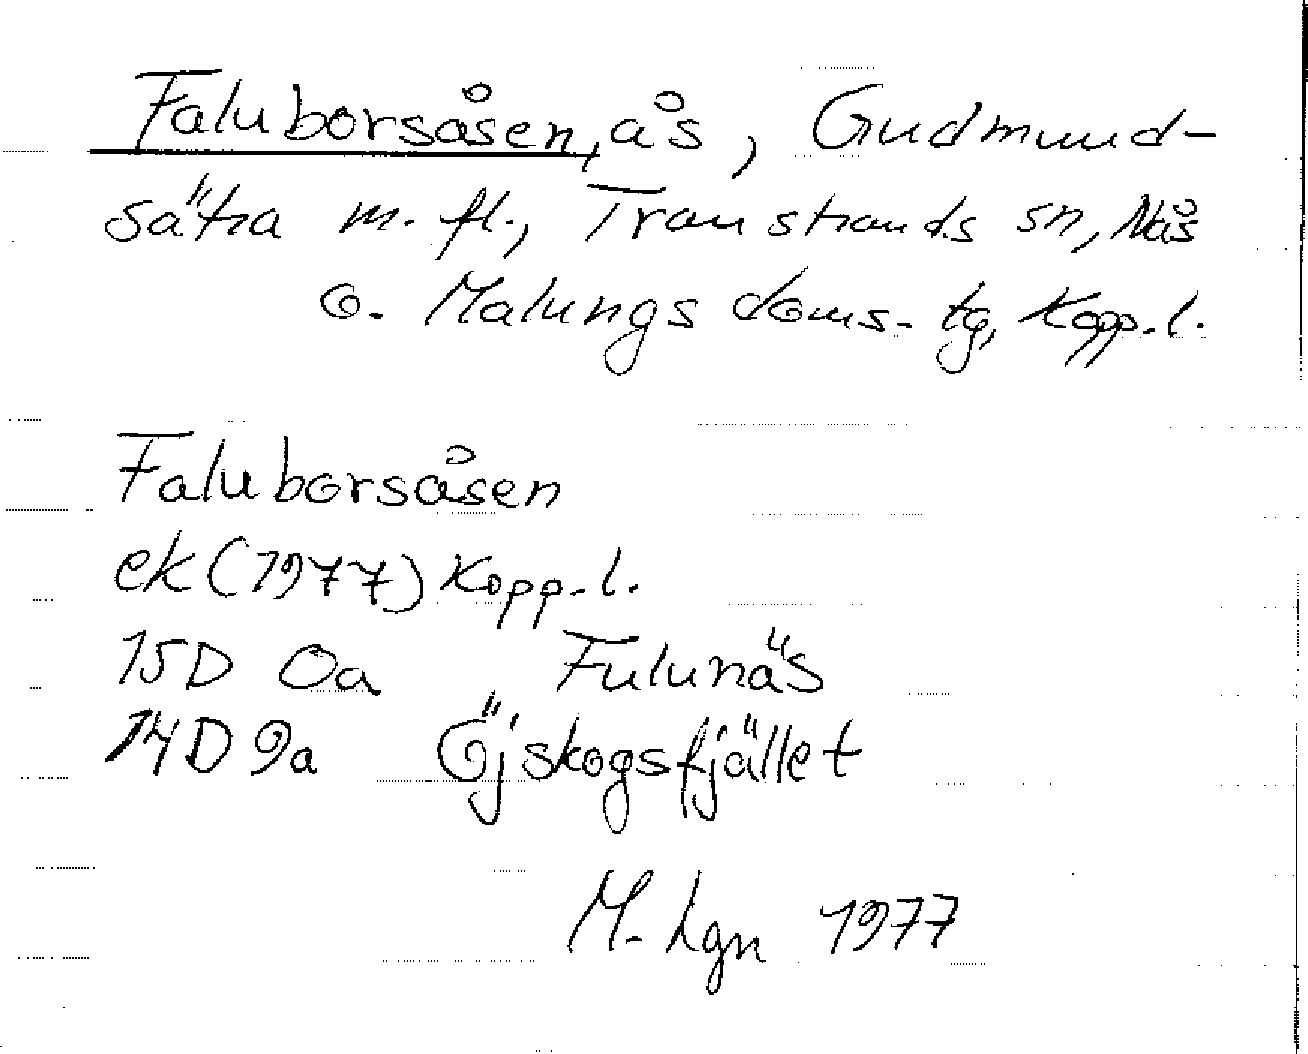 Faluborsåsen, ås, Gudmund-
sätra m. fl., Transtrands sn, Nås
o. Malungs doms. tg, Kopp. l.
Faluborsåsen
ek (1977) Kopp. l.
15D 0a Fulunäs
14D 9a Öjskogsfjället
M. Lgn 1977